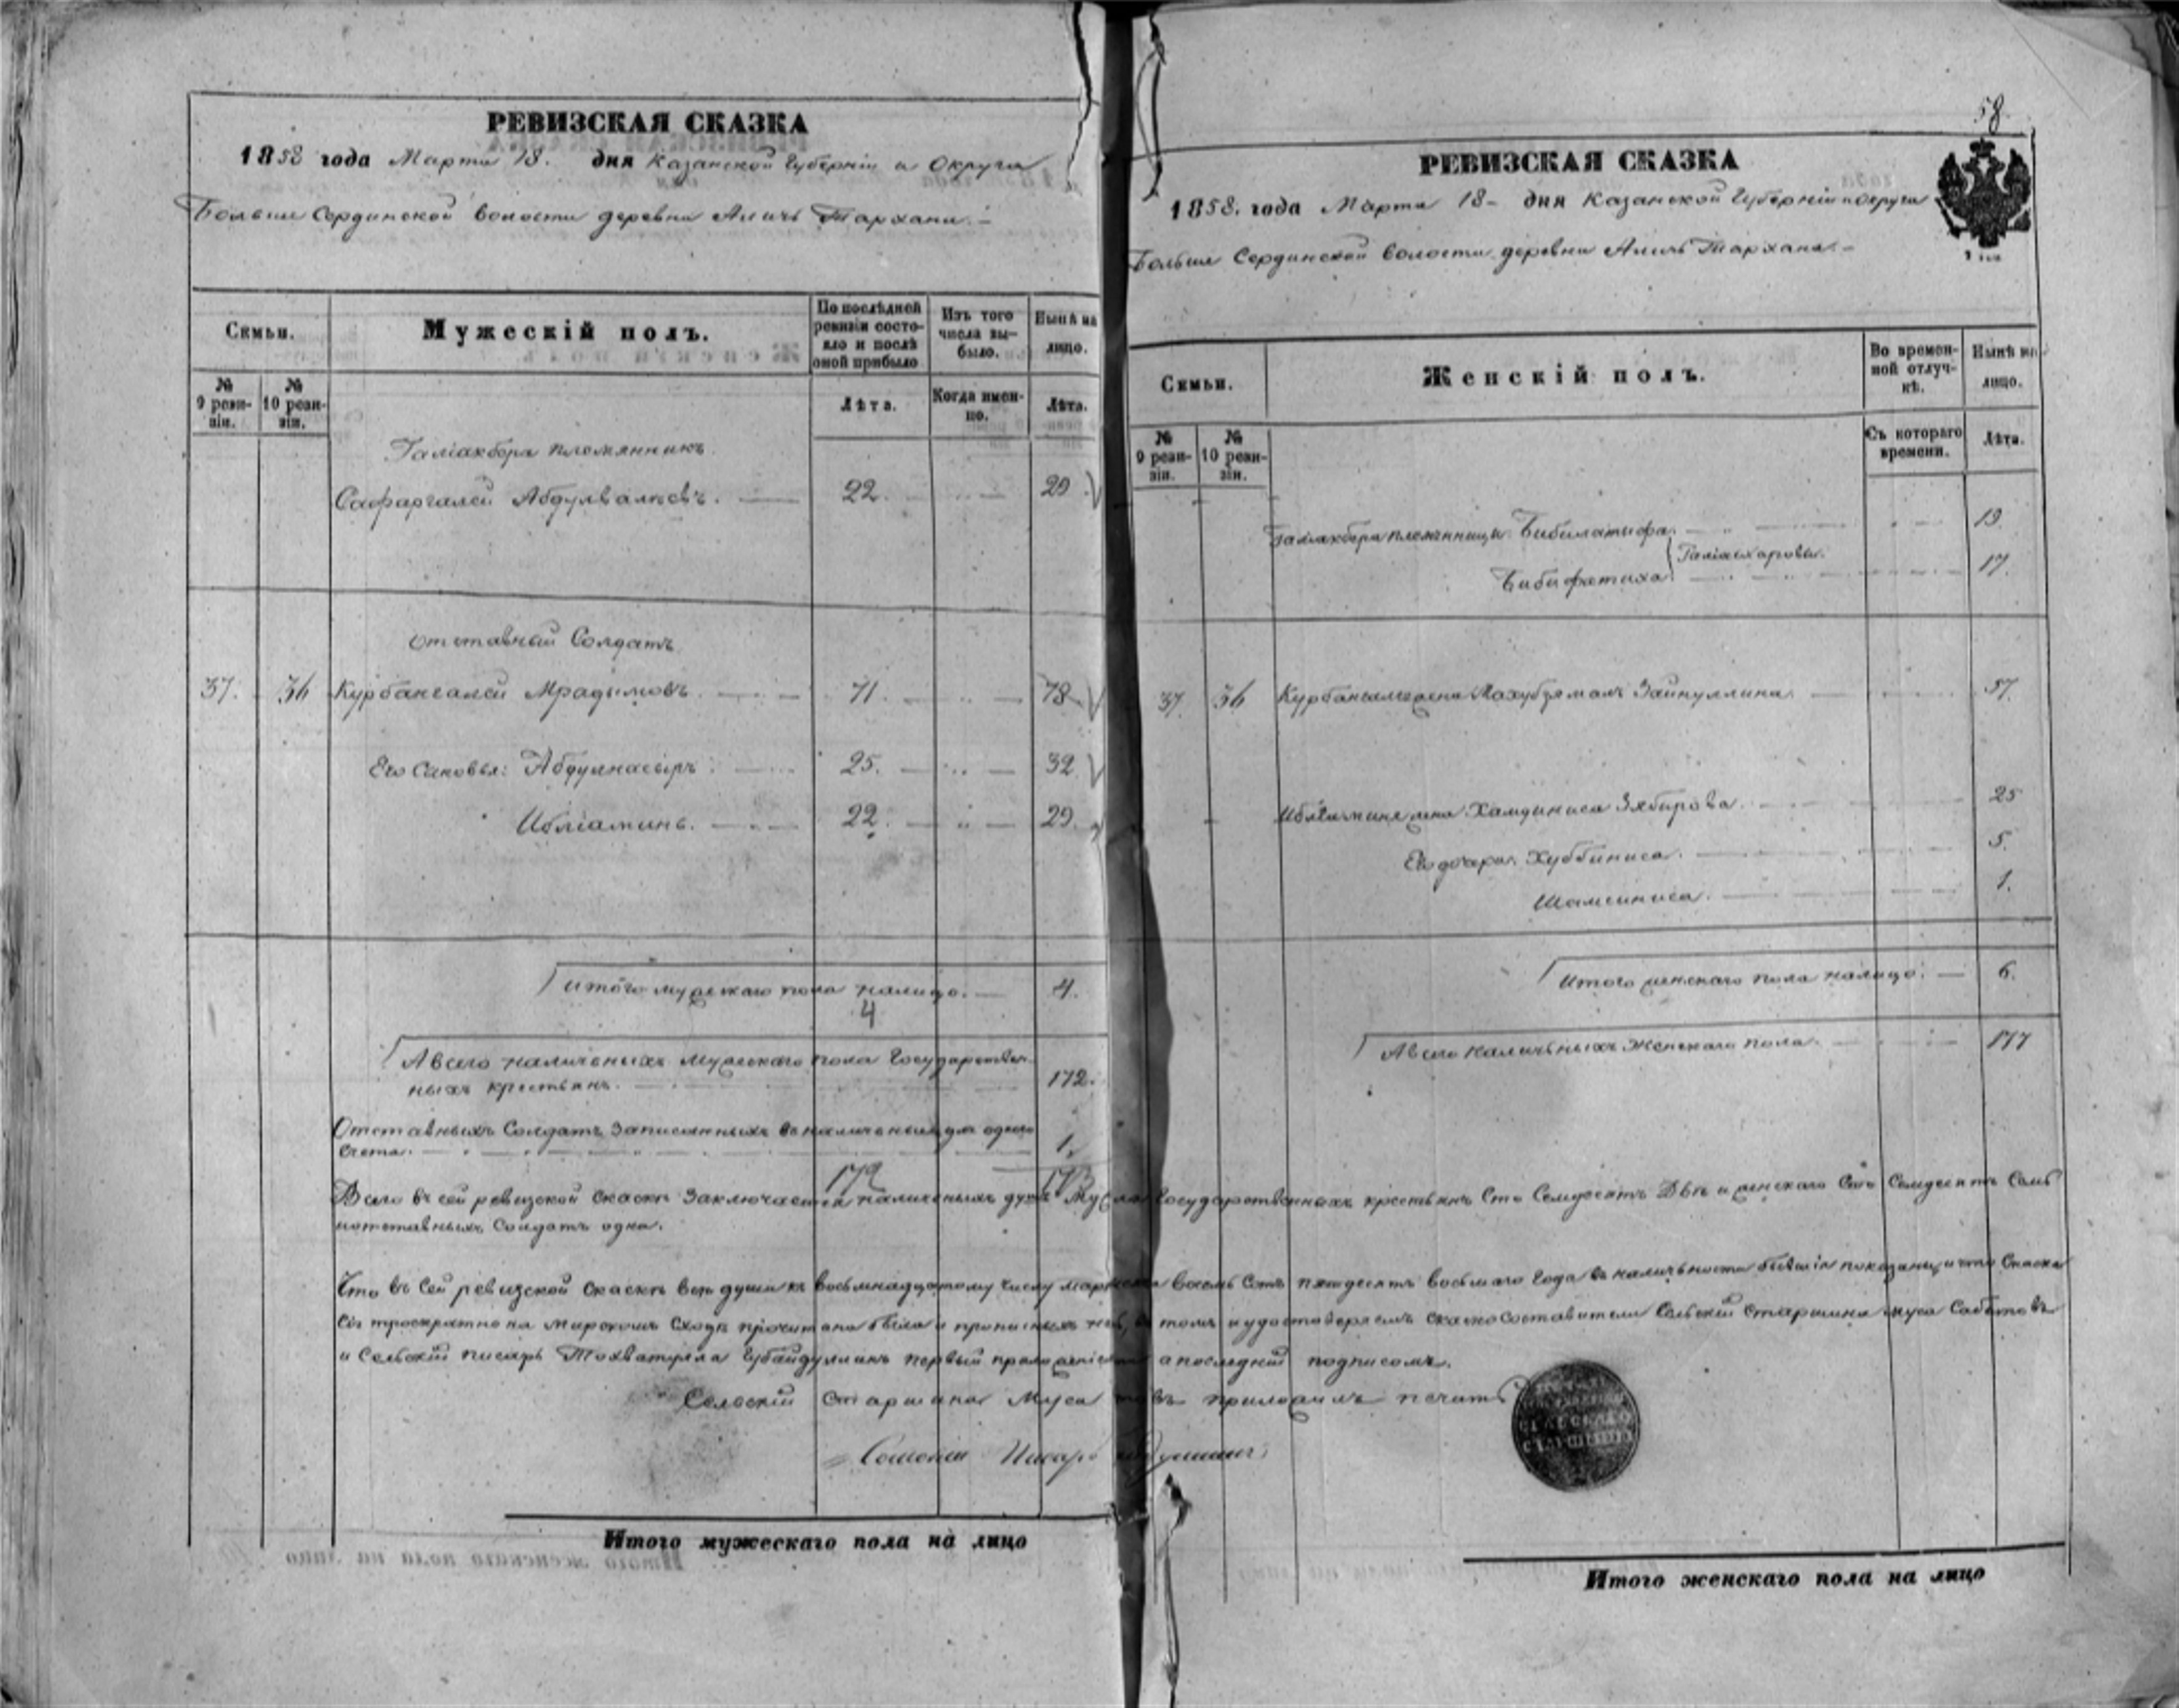 РЕВИЗСКАЯ СКАЗКА
1858 года Марта 18. дня Казанской Губерніи и Округа
Больше Сердинской волости деревни Алатъ Тархана.
Семьи.
Мужескій полъ.
По послѣдней ревизіи состояло и послѣ оной прибыло
Изъ того числа выбыло.
Нынѣ на лицо.
№ 9 ревизіи.
№ 10 ревизіи.
Лѣта.
Когда именно.
Лѣта.
Галіакбера племянникъ
Сафаргалей Абдулвалиевъ. 22. 29
отставный Солдатъ
37. 36 Курбангалей Мрадымовъ. 71. 78
Его Сановья: Абдулнасыръ. 25. 32
22. 29
итого мужескаго пола налицо. 4.
4
А всего наличныхъ мужескаго пола Государствен-
ныхъ крестьянъ. 172.
Отставныхъ Солдатъ записанныхъ въ наличныя для одного
счета. 1.
172 173
58
РЕВИЗСКАЯ СКАЗКА
1858. года Марта 18 дня Казанской Губерніи и Округа
Больше Сердинской волости деревни Алатъ Тархана.
Семьи.
Женскій полъ.
Во временной отлучкѣ.
Нынѣ на лицо.
№ 9 ревизіи.
№ 10 ревизіи.
Съ котораго времени.
Лѣта.
Галіакбера племянницы Бибилатыфа. 19.
Бибифатиха 17.
37. 36 Курбангалея жена Махубзямалъ Зайнуллина 57.
жена Хамдиниса Зябирова. 25
Его дочери Хуббиниса. 5.
Шамсиниса. 1.
Итого женскаго пола налицо. 6.
А всего наличныхъ Женскаго пола. 177
Всего въ сей ревизской сказкѣ заключается наличныхъ душъ Государственныхъ крестьянъ Сто Семдесятъ Двѣ и женскаго Сто Семдесятъ Семь
и отставныхъ Солдатъ одна.
Что въ сей ревизской сказкѣ всѣ души къ восьмнадцатому числу марта восемь Сотъ пятдесятъ восьмаго года въ наличности бывшія показаны и что Сказка
сія троекратно на мирскомъ сходѣ прочитана была и прописныхъ нѣтъ, въ томъ и удостоверяемъ сказкосоставители Сельскій Старшина Муса Сабитовъ
и Сельскій писарь Тохватулла Губайдуллинъ первый приложеніемъ а последній подписомъ.
Сельскій Старшина Муса приложилъ печать
Сельскій Писарь
Итого мужескаго пола на лицо
Итого женскаго пола на лицо